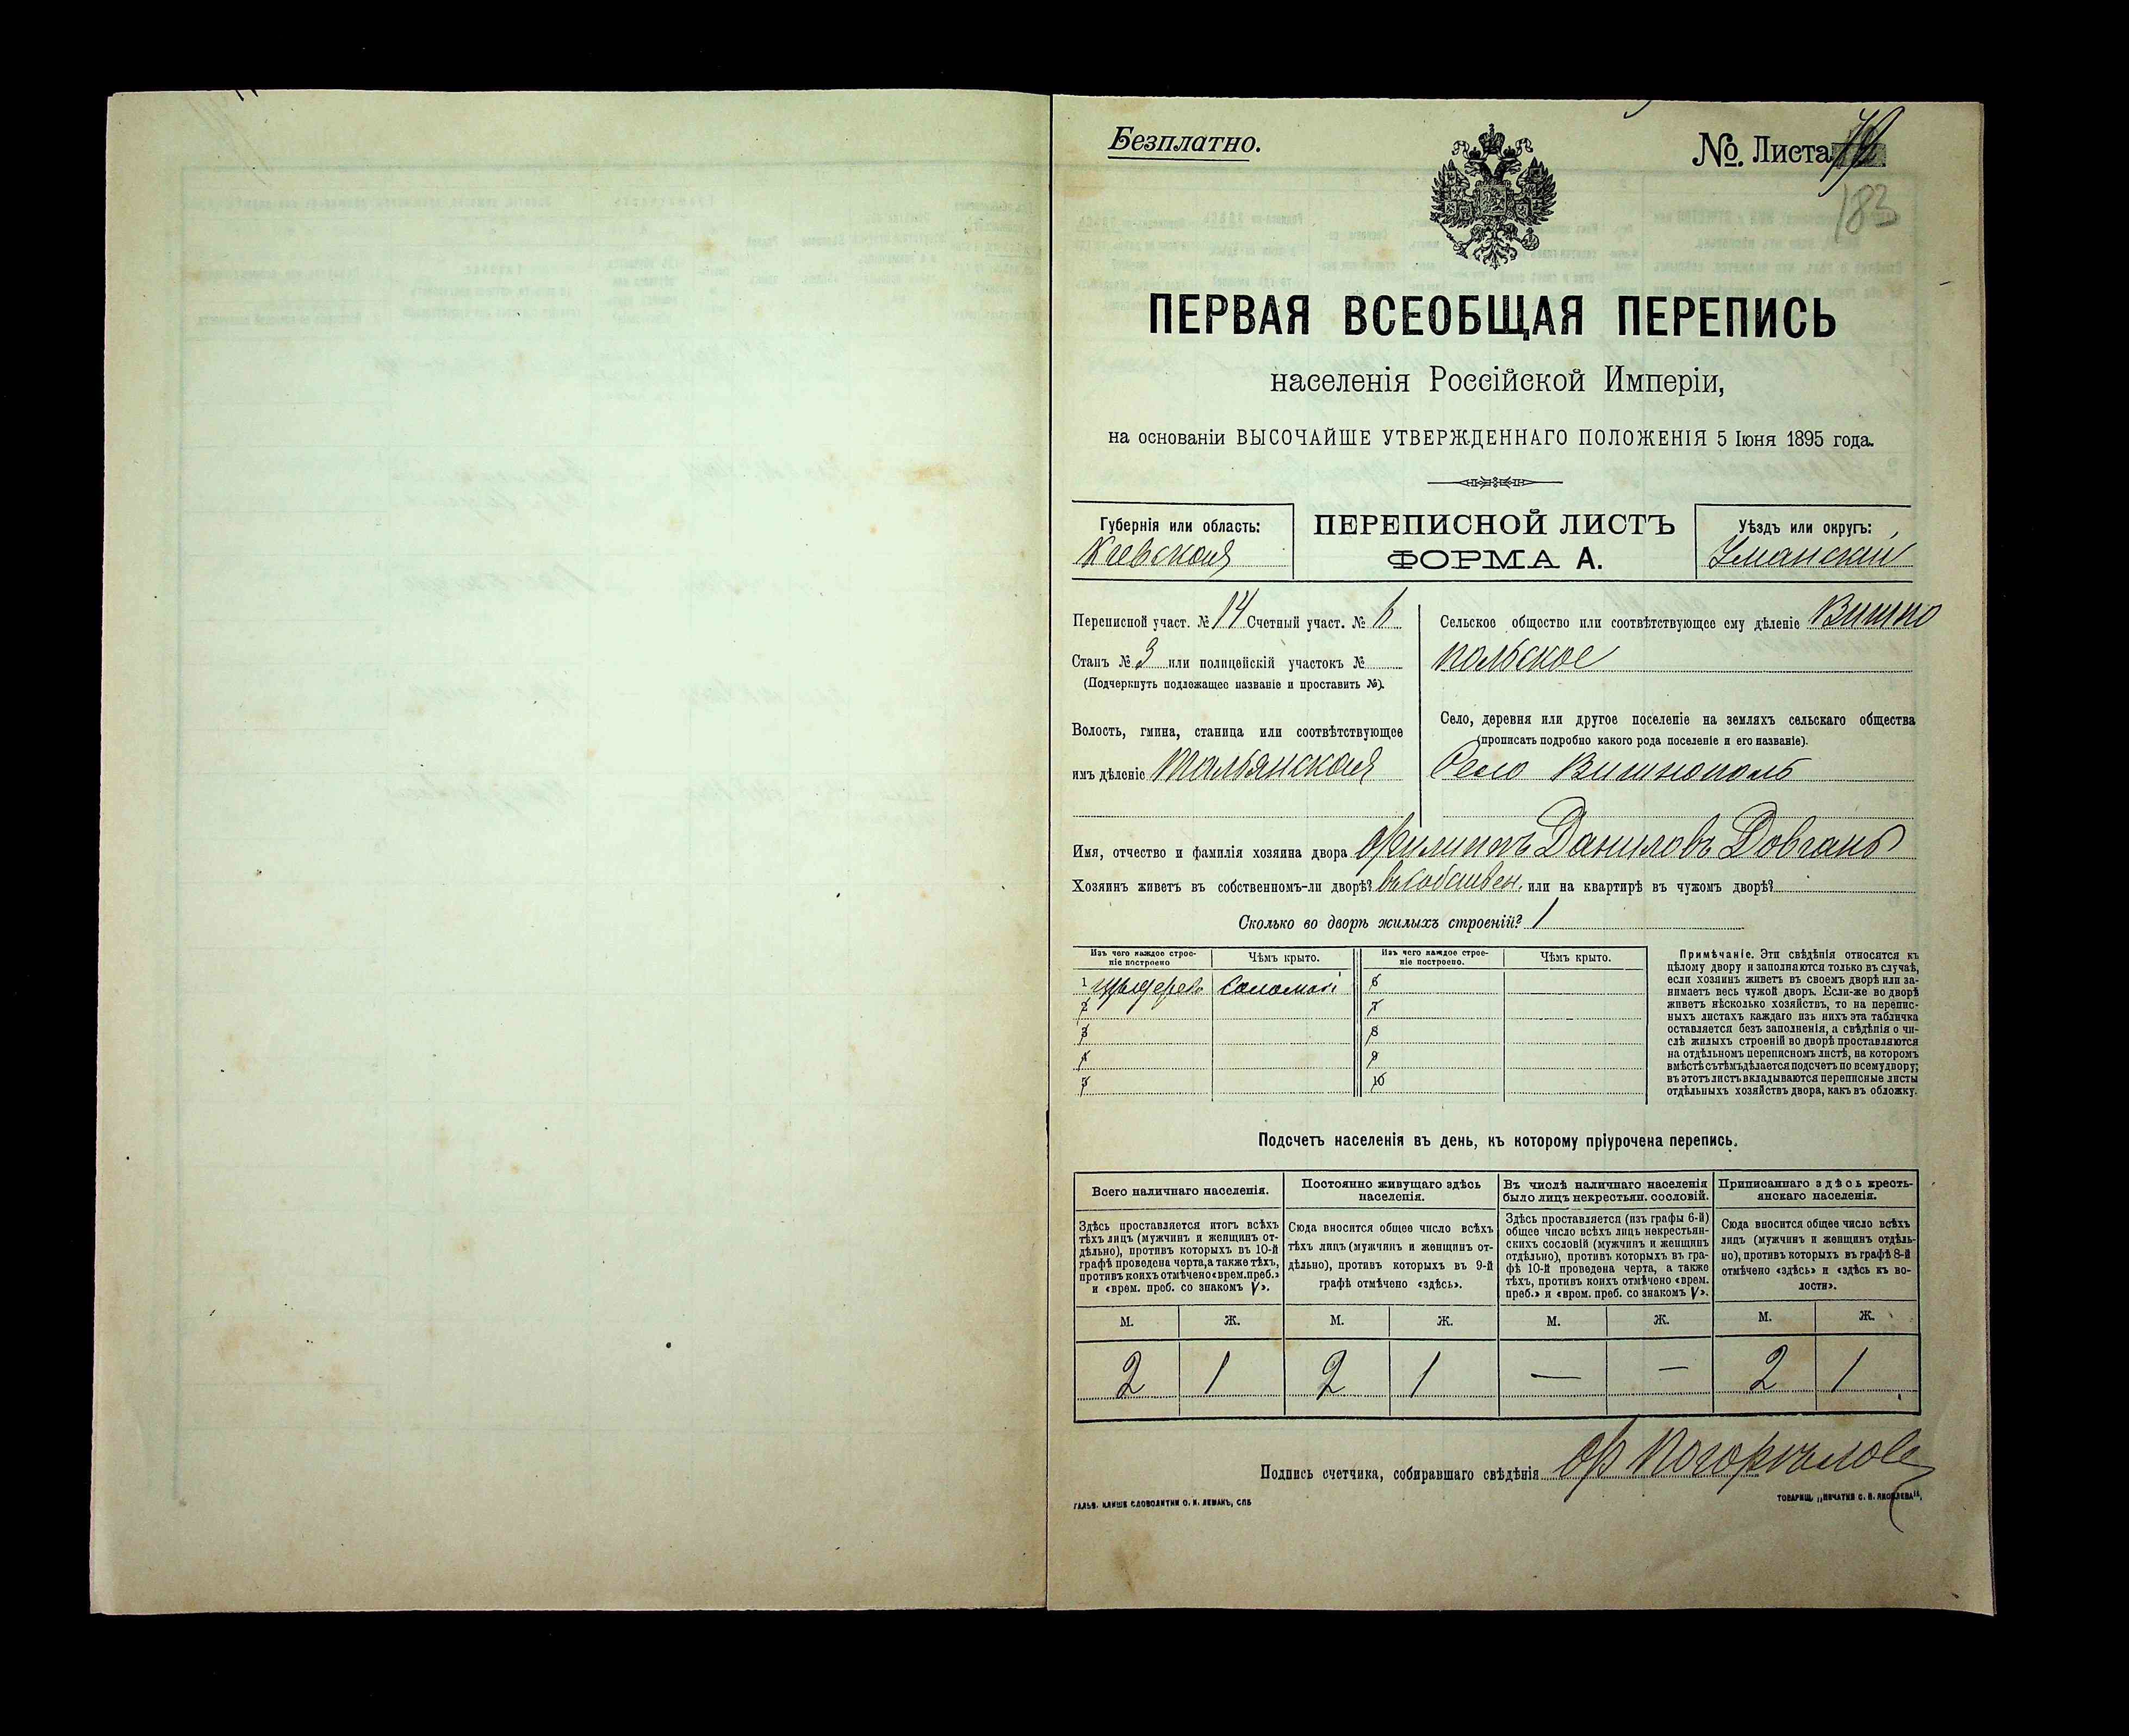 Безплатно.
№. Листа
183
ПЕРВАЯ ВСЕОБЩАЯ ПЕРЕПИСЬ
населенія Россійской Имперіи,
на основаніи ВЫСОЧАЙШЕ УТВЕРЖДЕННАГО ПОЛОЖЕНІЯ 5 Іюня 1895 года.
Губернія или область:
Кіевская
ПЕРЕПИСНОЙ ЛИСТЪ
ФОРМА А.
Уѣздъ или округъ:
Уманскій
Переписной участ. № 14 Счетный участ. № 6
Станъ № 3 или полицейскій участокъ №
(Подчеркнуть подлежащее названіе и проставить №).
Волость, гмина, станица или соотвѣтствующее
имъ дѣленіе Тальянская
Сельское общество или соотвѣтствующее ему дѣленіе Вишно
польское
Село, деревня или другое поселеніе на земляхъ сельскаго общества
(прописать подробно какого рода поселеніе и его названіе).
Село Вишнополь
Имя, отчество и фамилія хозяина двора Филиппъ Даниловъ Довгань
Хозяинъ живетъ въ собственномъ-ли дворѣ? въ собствен. или на квартирѣ въ чужомъ дворѣ?
Сколько во дворѣ жилыхъ строеній? 1
Изъ чего каждое строе-
ніе построено
Чѣмъ крыто.
Изъ чего каждое строе-
ніе построено.
Чѣмъ крыто.
1 Соломой 6
2 7
3 8
4 9
5 10
Примѣчаніе. Эти свѣдѣнія относятся къ
цѣлому двору и заполняются только въ случаѣ,
если хозяинъ живетъ въ своемъ дворѣ или за-
нимаетъ весь чужой дворъ. Если-же во дворѣ
живетъ нѣсколько хозяйствъ, то на перепис-
ныхъ листахъ каждаго изъ нихъ эта табличка
оставляется безъ заполненія, а свѣдѣнія о чи-
слѣ жилыхъ строеній во дворѣ проставляются
на отдѣльномъ переписномъ листѣ, на которомъ
вмѣстѣ съ тѣмъ дѣлается подсчетъ по всему двору;
въ этотъ листъ вкладываются переписные листы
отдѣльныхъ хозяйствъ двора, какъ въ обложку.
Подсчетъ населенія въ день, къ которому пріурочена перепись.
Всего наличнаго населенія.
Здѣсь проставляется итогъ всѣхъ
тѣхъ лицъ (мужчинъ и женщинъ от-
дѣльно), противъ которыхъ въ 10-й
графѣ проведена черта, а также тѣхъ,
противъ коихъ отмѣчено «врем. преб.»
и «врем. преб. со знакомъ V».
Постоянно живущаго здѣсь
населенія.
Сюда вносится общее число всѣхъ
тѣхъ лицъ (мужчинъ и женщинъ от-
дѣльно), противъ которыхъ въ 9-й
графѣ отмѣчено «здѣсь».
Въ числѣ наличнаго населенія
было лицъ некрестьян. сословій.
Здѣсь проставляется (изъ графы 6-й)
общее число всѣхъ лицъ некрестьян-
скихъ сословій (мужчинъ и женщинъ
отдѣльно), противъ которыхъ въ гра-
фѣ 10-й проведена черта, а также
тѣхъ, противъ коихъ отмѣчено «врем.
преб.» и «врем. преб. со знакомъ V».
Приписаннаго здѣсь кресть-
янскаго населенія.
Сюда вносится общее число всѣхъ
лицъ (мужчинъ и женщинъ отдѣль-
но), противъ которыхъ въ графѣ 8-й
отмѣчено «здѣсь» и «здѣсь къ во-
лости».
М. Ж. М. Ж. М. Ж. М. Ж.
2 1 2 1 — — 2 1
Подпись счетчика, собиравшаго свѣдѣнія Ф Погорѣлов
ГАЛЬВ. КЛИШЕ СЛОВОЛИТНИ О. И. ЛЕМАНЪ, СПБ
ТОВАРИЩ. „ПЕЧАТНЯ С. П. ЯКОВЛЕВА",